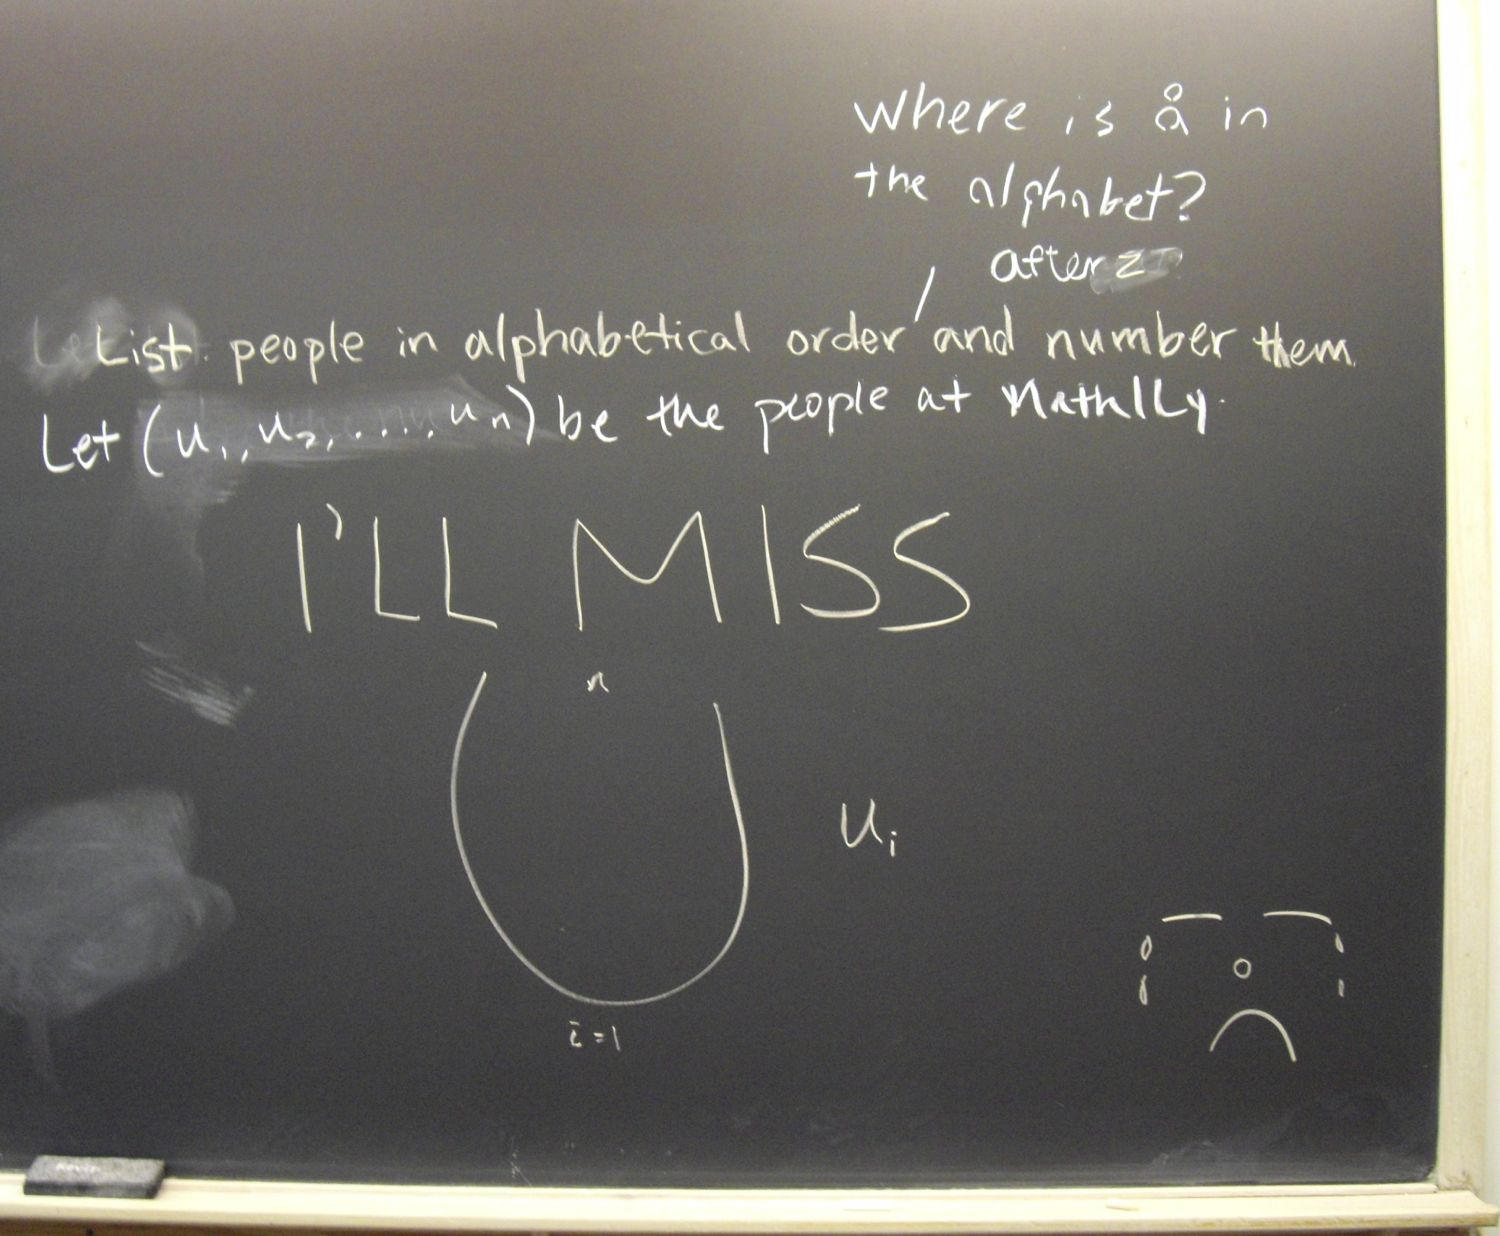 Where is å in
the alphabet?
after z
List people in alphabetical order and number them.
Let (u₁, u₂, ..., uₙ) be be the people at MathILy.
I'LL MISS
n
U uᵢ
i=1